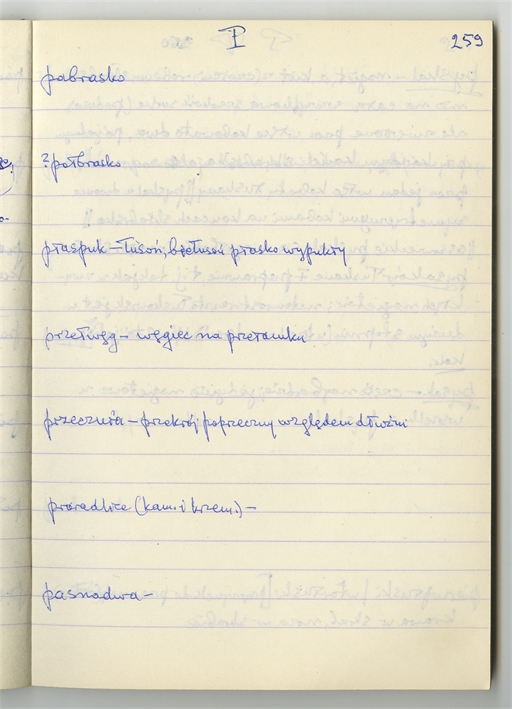 P 259
pabrasko
? połbrasko
płaspuk – łusoń, bgłusoń płasko wypukły
przełwgg – węgiec na przełamku
przecznia – przekrój poprzeczny względem dłużni
proradlice (kam. i krzem.) –
pasnadwa –